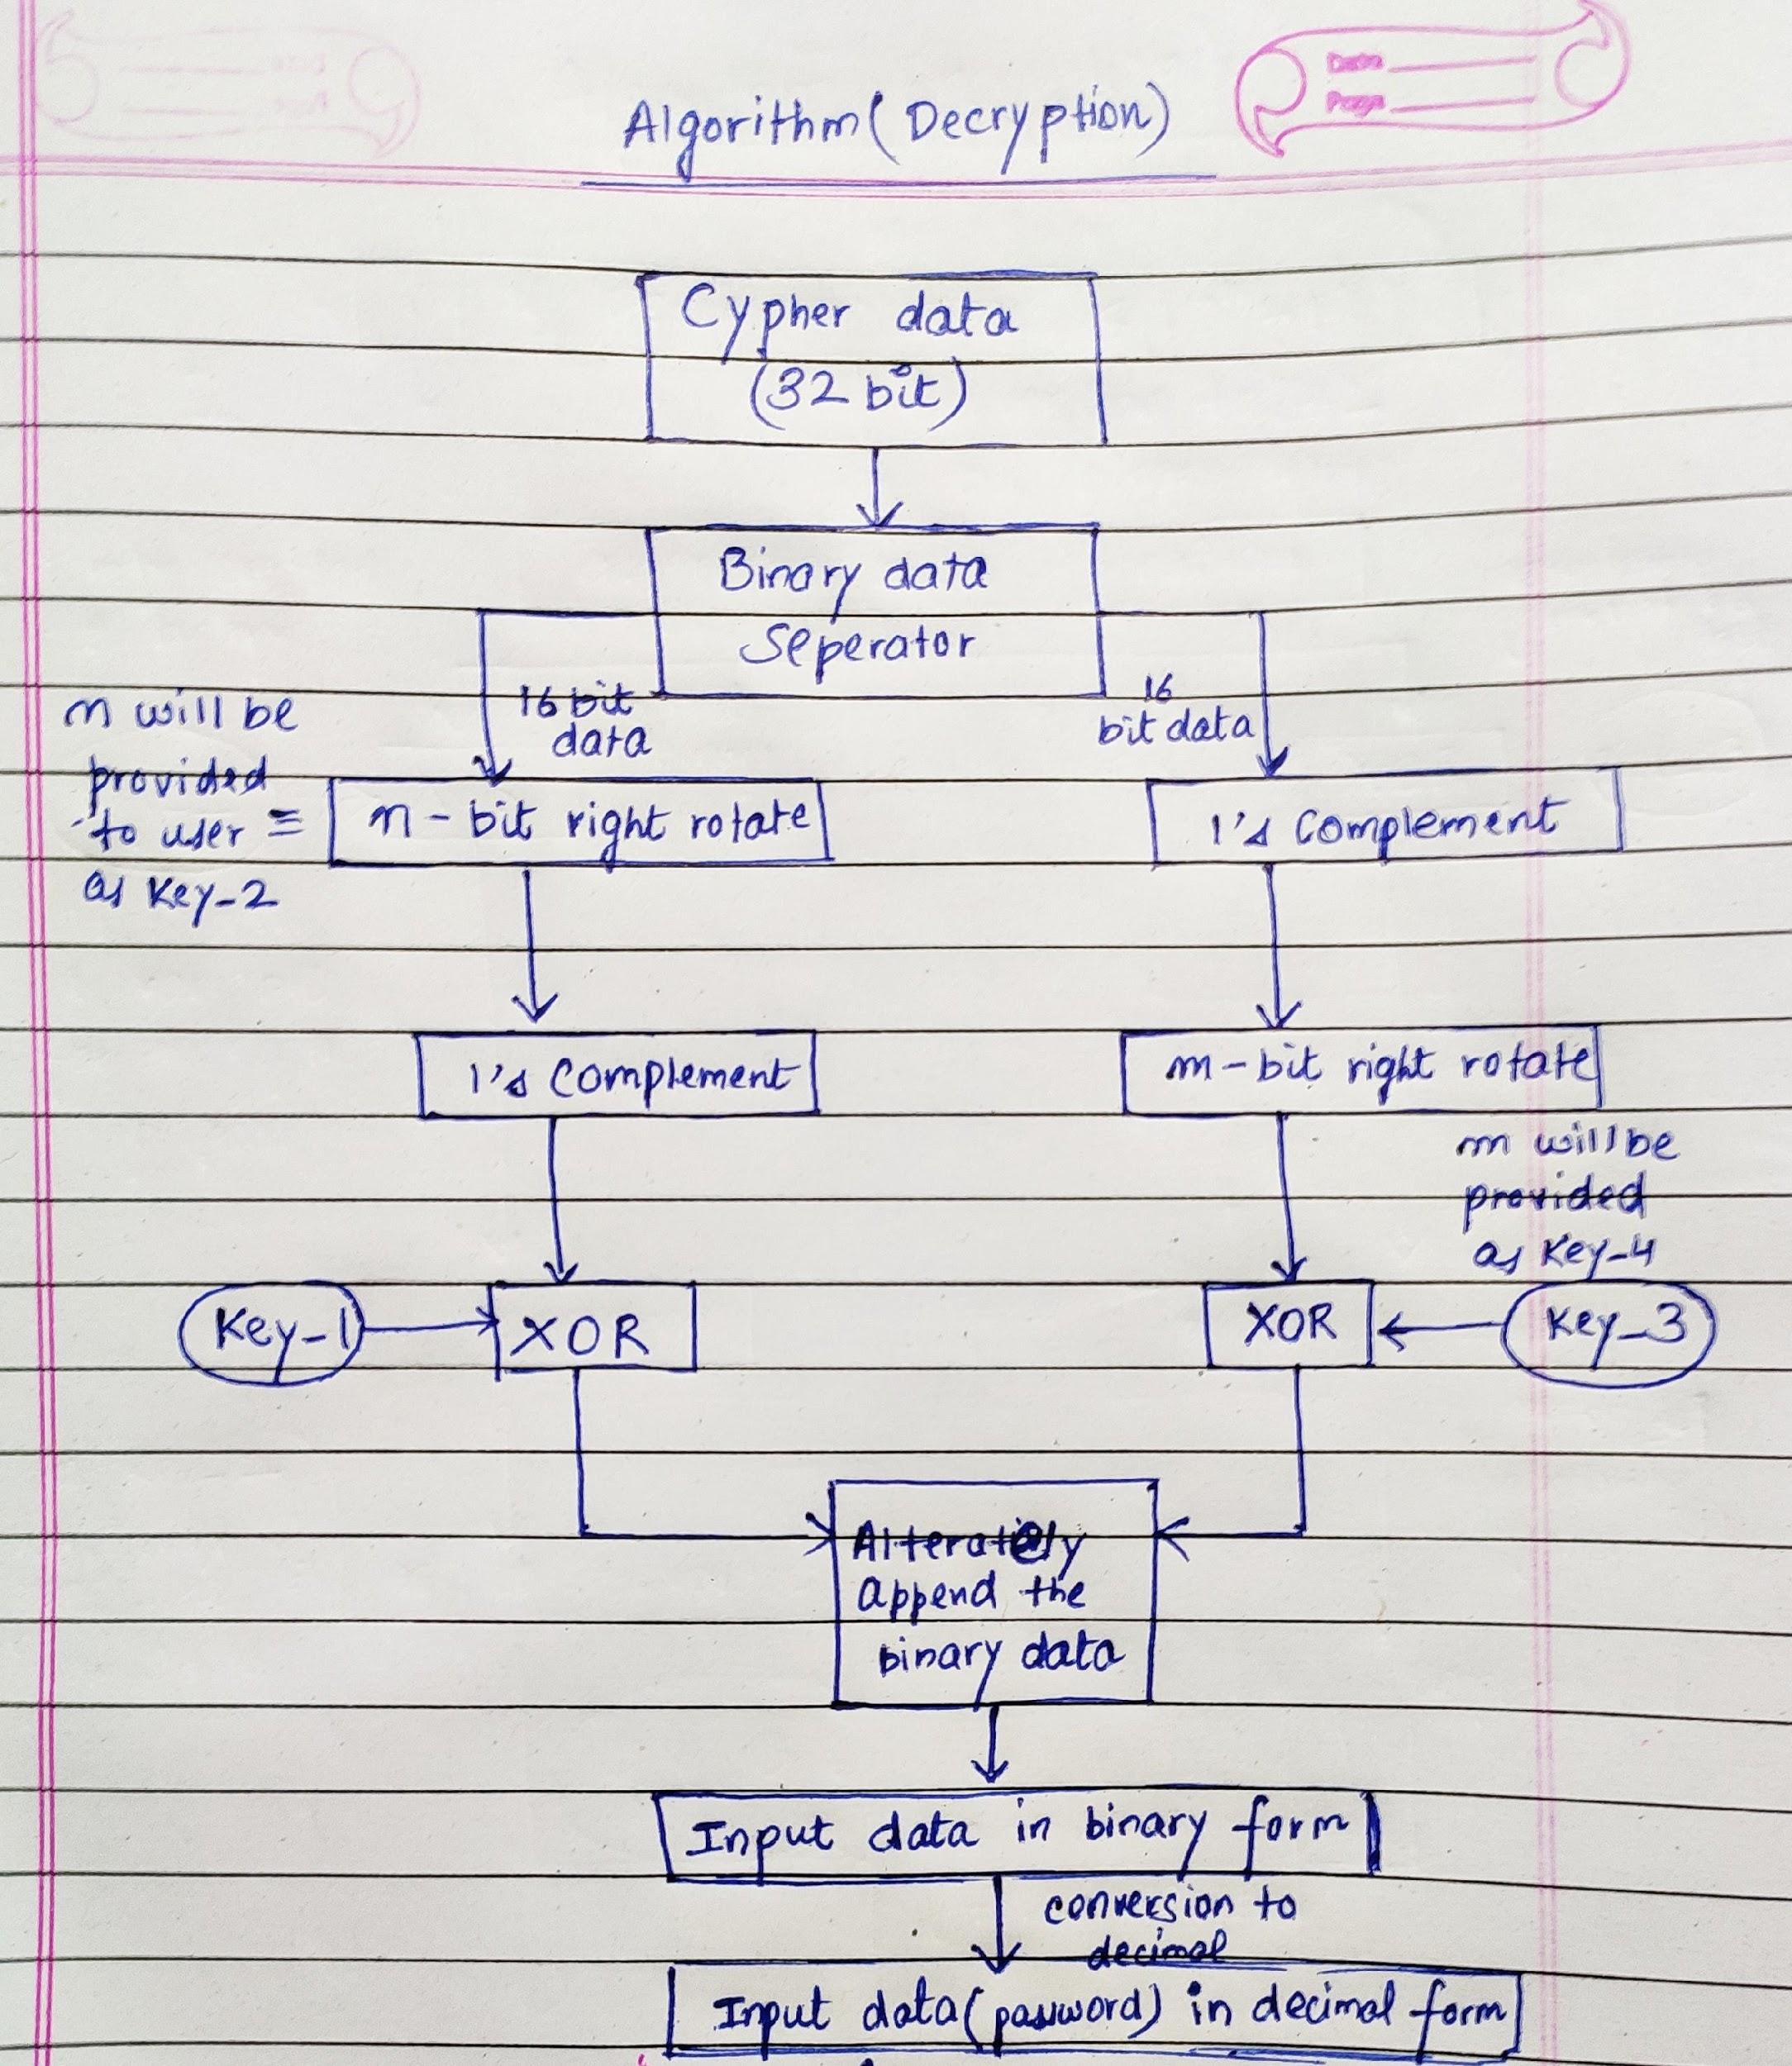 Date
Page
Algorithm (Decryption)
Cypher data
(32 bit)
Binary data
Seperator
16 bit
data
16
bit data
n will be
provided
to user ≡
as Key-2
n - bit right rotate
1's Complement
1's Complement
m - bit right rotate
m will be
provided
as Key-4
Key-1
XOR
XOR
Key-3
append the
binary data
Input data in binary form
conversion to
decimal
Input data (password) in decimal form